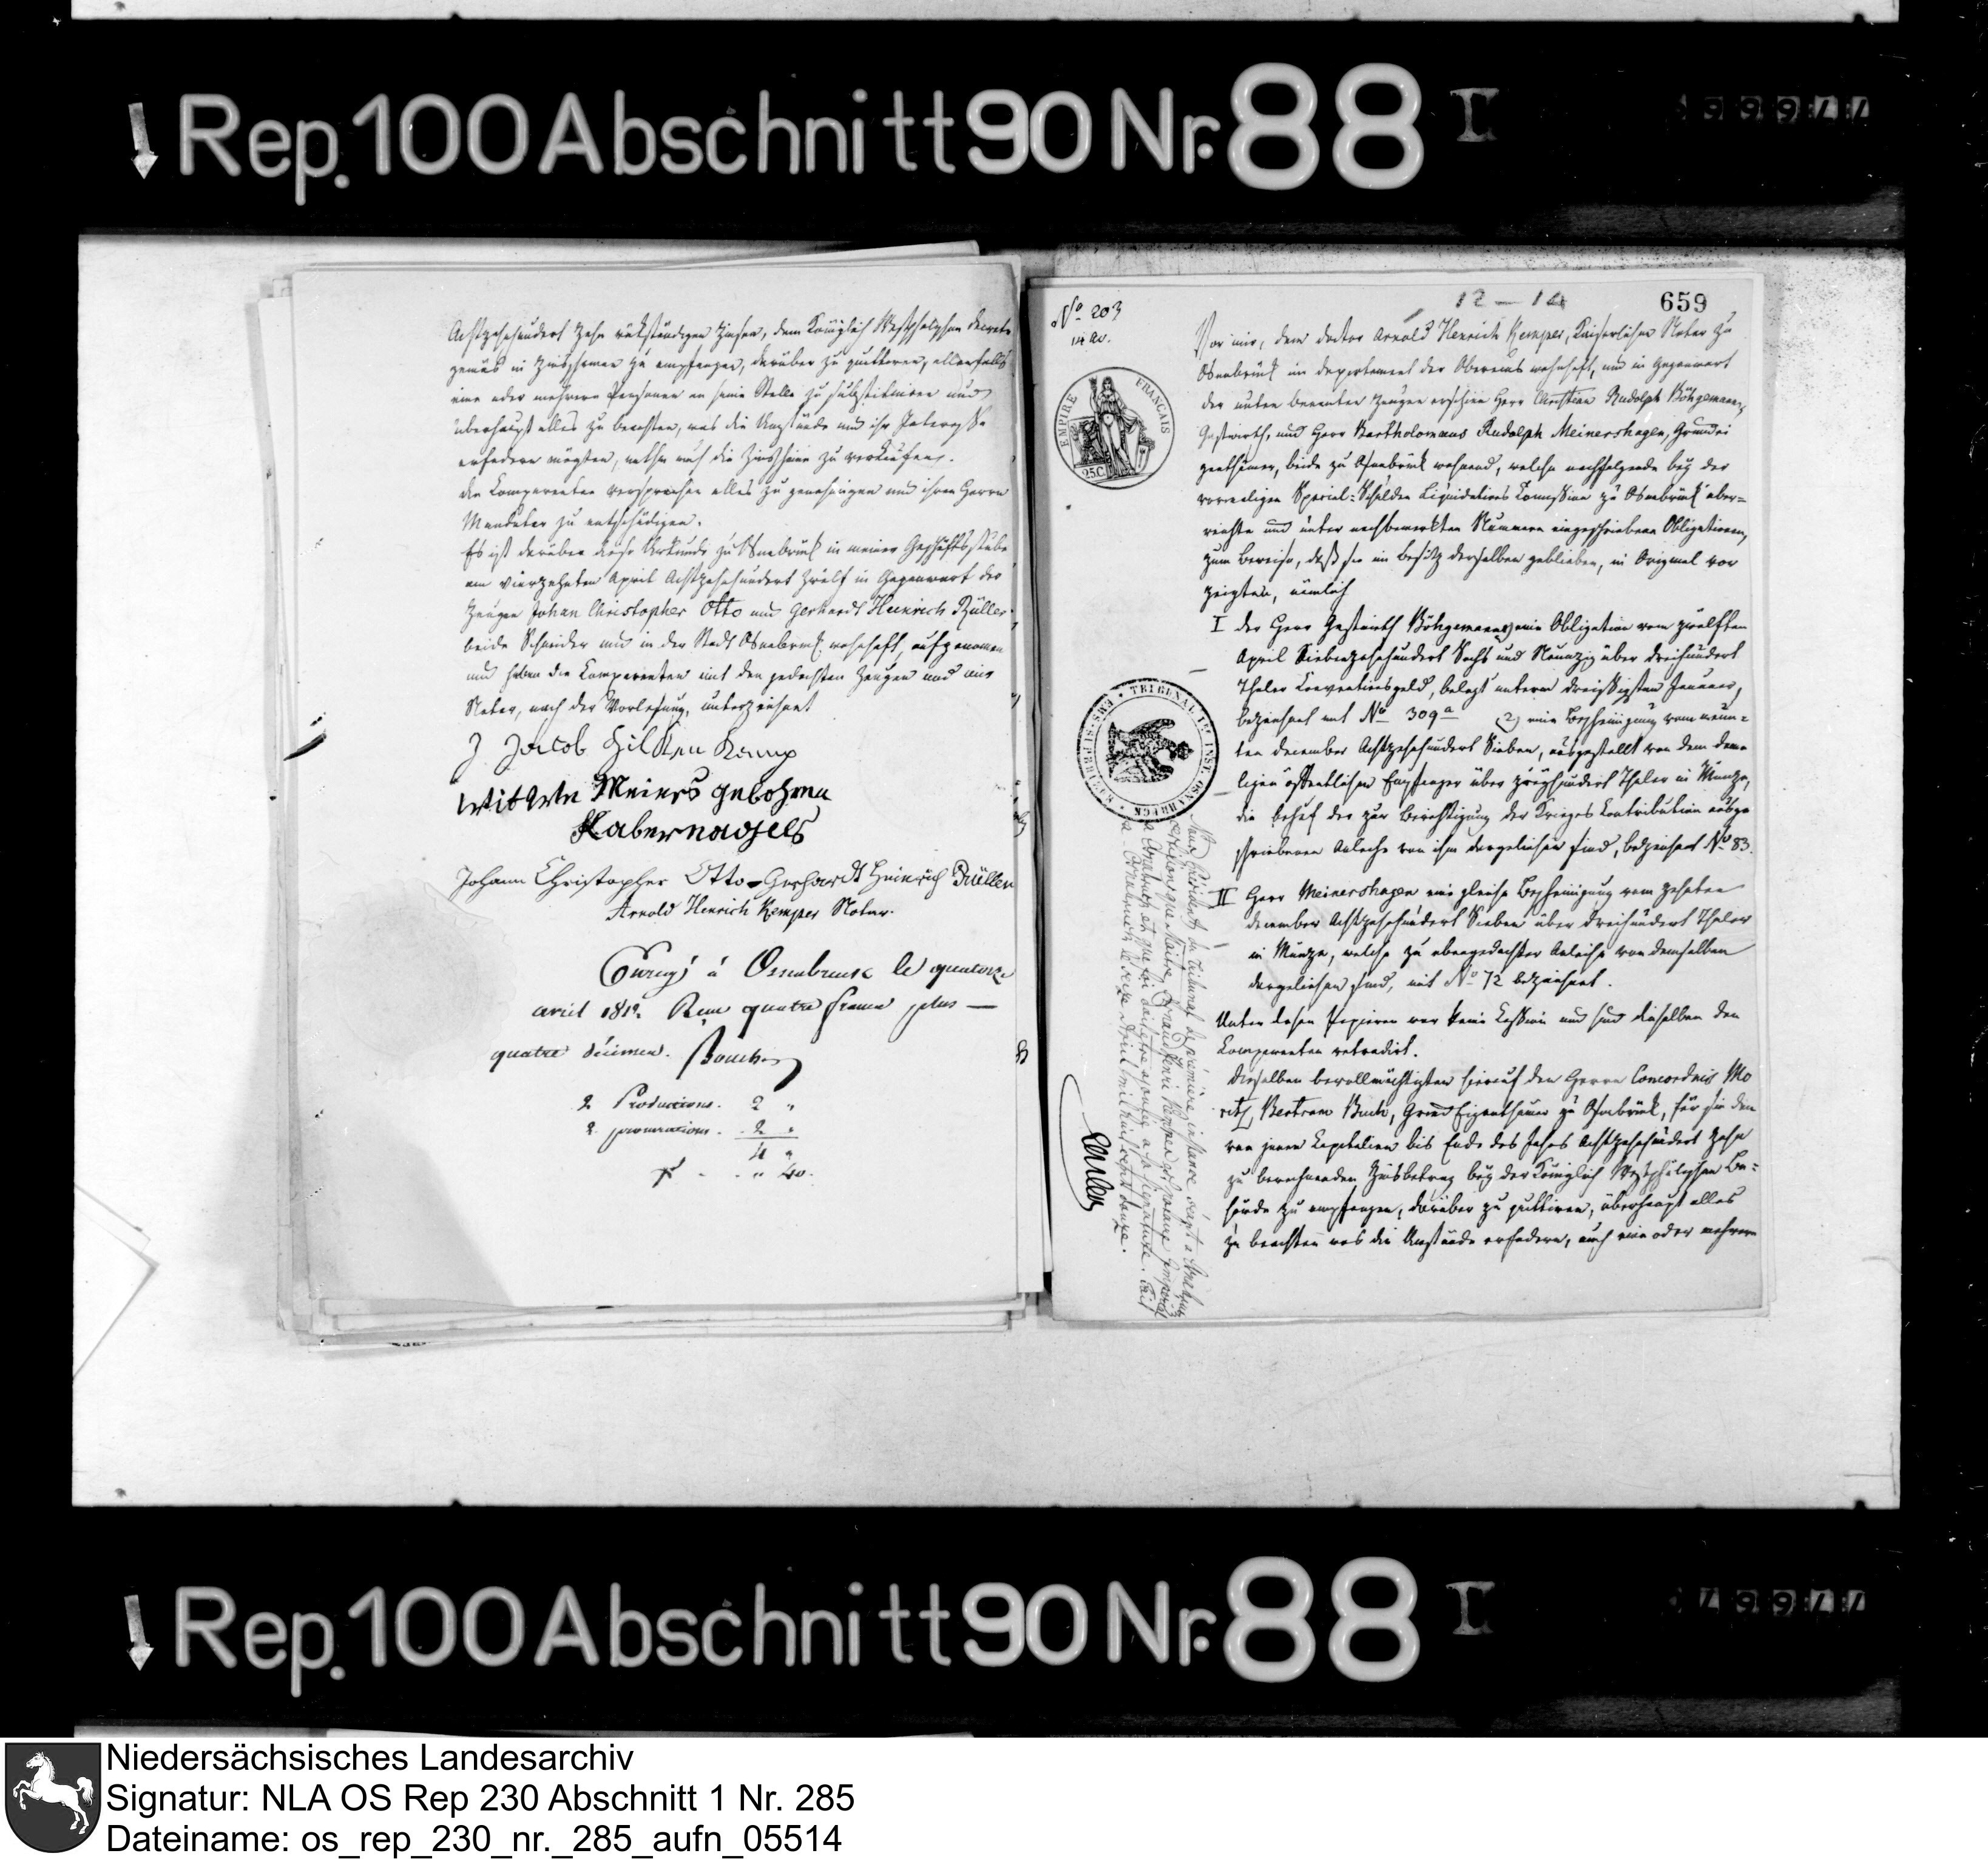 Rep. 100 Abschnitt 90 Nr. 88 I
Achtzehnhundert Zehn rückständigen Zinsen, dem Königlich Westphälschen Decrete
gemäs in Zinsscheinen zu empfangen, darüber zu quittiren, allenfalls
eine oder mehrere Personen an seine Stelle zu substituiren und
überhaupt alles zu beachten, was die Umstände und ihr Interesse
erfodern mögten, mithin auch die Zinsscheine zu verkaufen.
die Comparenten versprechen alles zu genehmigen und ihren Herrn
Mandatar zu entschädigen.
Es ist darüber diese Urkunde zu Osnabrück in meiner Geschäftsstube
am vierzehnten April Achtzehnhundert Zwölf in Gegenwart der
Zeugen Johan Christopher Otto und Gerhardt Heinrich Rüller
beide Schneider und in der Stadt Osnabrück wohnhaft, aufgenommen
und haben die Comparenten mit den gedachten Zeugen und mir
Notar, nach der Vorlesung, unterzeichnet
J Jacob Hilkenkamp
Witwe Meiers gebohren
Habernagels
Johann Christopher Otto Gerhardt Heinrich Rüller
Arnold Henrich Kemper Notar.
Enregé à Osnabruck le quatorze
avril 1812. Reçu quatre francs plus
quatre décimes.
2 Productions. 2 "
2 procurations. 2 "
4 "
" 40.
12 — 14
659
No 203
14 av.
EMPIRE FRANCAIS
25 C
TRIBUNAL Ire INST. OSNABRÜCK
Vor mir, dem doctor Arnold Henrich Kemper, Kaiserlichen Notar zu
Osnabrück im departement der Oberems wohnhaft, und in Gegenwart
der unten benannten Zeugen erschien Herr Christian Rudolph Böhgemann,
Gastwirth, und Herr Bartholomaeus Rudolph Meinershagen, Grundei
genthümer, beide zu Osnabrück wohnend, welche nachfolgende bey der
vormaligen Special-Schulden Liquidations Commission zu Osnabrück über-
reichte und unter nachbemerkten Nummern eingeschriebene Obligationen,
zum Beweise, daß sie im Besitz derselben geblieben, in Original vor
zeigten, nämlich
I der Herr Gastwirth Böhgemann 1) eine Obligation vom zwölften
April Siebenzehnhundert Sechs und Neunzig über dreihundert
Thaler Conventionsgeld, belegt unterm dreißigsten Januar,
bezeichnet mit No 309a 2) eine Bescheinigung vom neun-
ten december Achtzehnhundert Sieben, ausgestellt von dem dama
ligen öffentlichen Empfänger über zweyhundert Thaler in Münze,
die behuf der zur Berichtigung der Krieges Contribution ausge
schriebenen Anleihe von ihm dargeliehen sind, bezeichnet No 83.
II Herr Meinershagen eine gleiche Bescheinigung vom zehnten
december Achtzehnhundert Sieben über dreihundert Thaler
in Münze, welche zu obengedachter Anleihe von demselben
dargeliehen sind, mit No 72 bezeichnet.
Unter diesen Papieren war keine Cession und sind dieselben den
Comparenten retradirt.
Dieselben bevollmächtigten hierauf den Herrn Concordius Mo
ritz Bertram Buch, Grund Eigenthümer zu Osnabrück, für sie den
von jenen Capitalien bis Ende des Jahrs Achtzehnhundert Zehn
zu berechnenden Zinsbetrag bey der Königlich Westphälschen Be-
hörde zu empfangen, darüber zu quittiren, überhaupt alles
zu beachten was die Umstände erfodern, auch eine oder mehrere
Rep. 100 Abschnitt 90 Nr. 88 I
Niedersächsisches Landesarchiv
Signatur: NLA OS Rep 230 Abschnitt 1 Nr. 285
Dateiname: os_rep_230_nr._285_aufn_05514